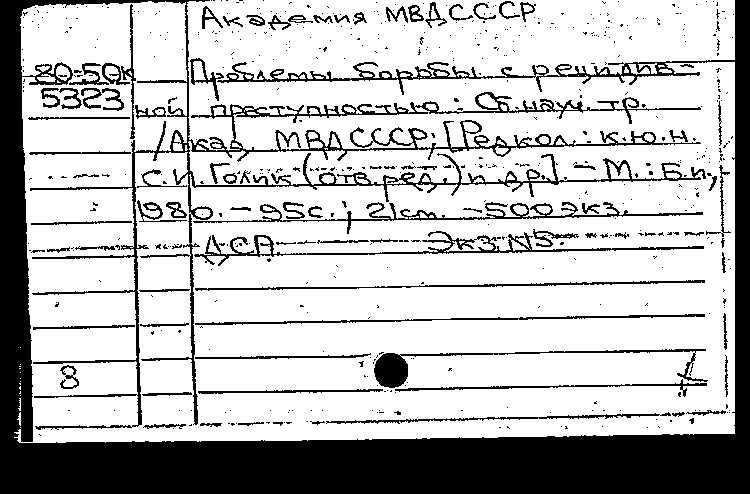 Академия МВД СССР
80-50к Проблемы борьбы с рецидив-
5323 ной преступностью: Сб. науч. тр.
/Акад. МВД СССР; [Редкол.: к.ю.н.
С.И. Голик (отв. ред.) и др.]. – М.: Б.и.,
1980. – 95с.; 21см. – 500 экз.
ДСП. Экз. №5.
8